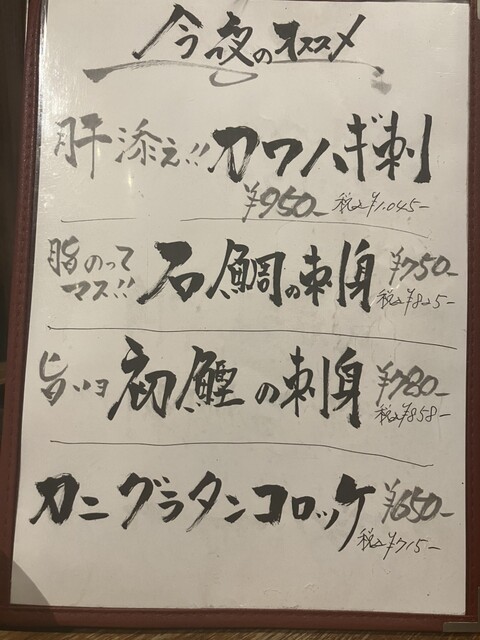 今夜のオススメ
肝添え!! カワハギ刺
¥950- 税込¥1.045-
脂のって
マス!! 石鯛の刺身 ¥750-
税込¥825-
旨いヨ 初鰹の刺身 ¥780-
税込¥858-
カニグラタンコロッケ ¥650-
税込¥715-